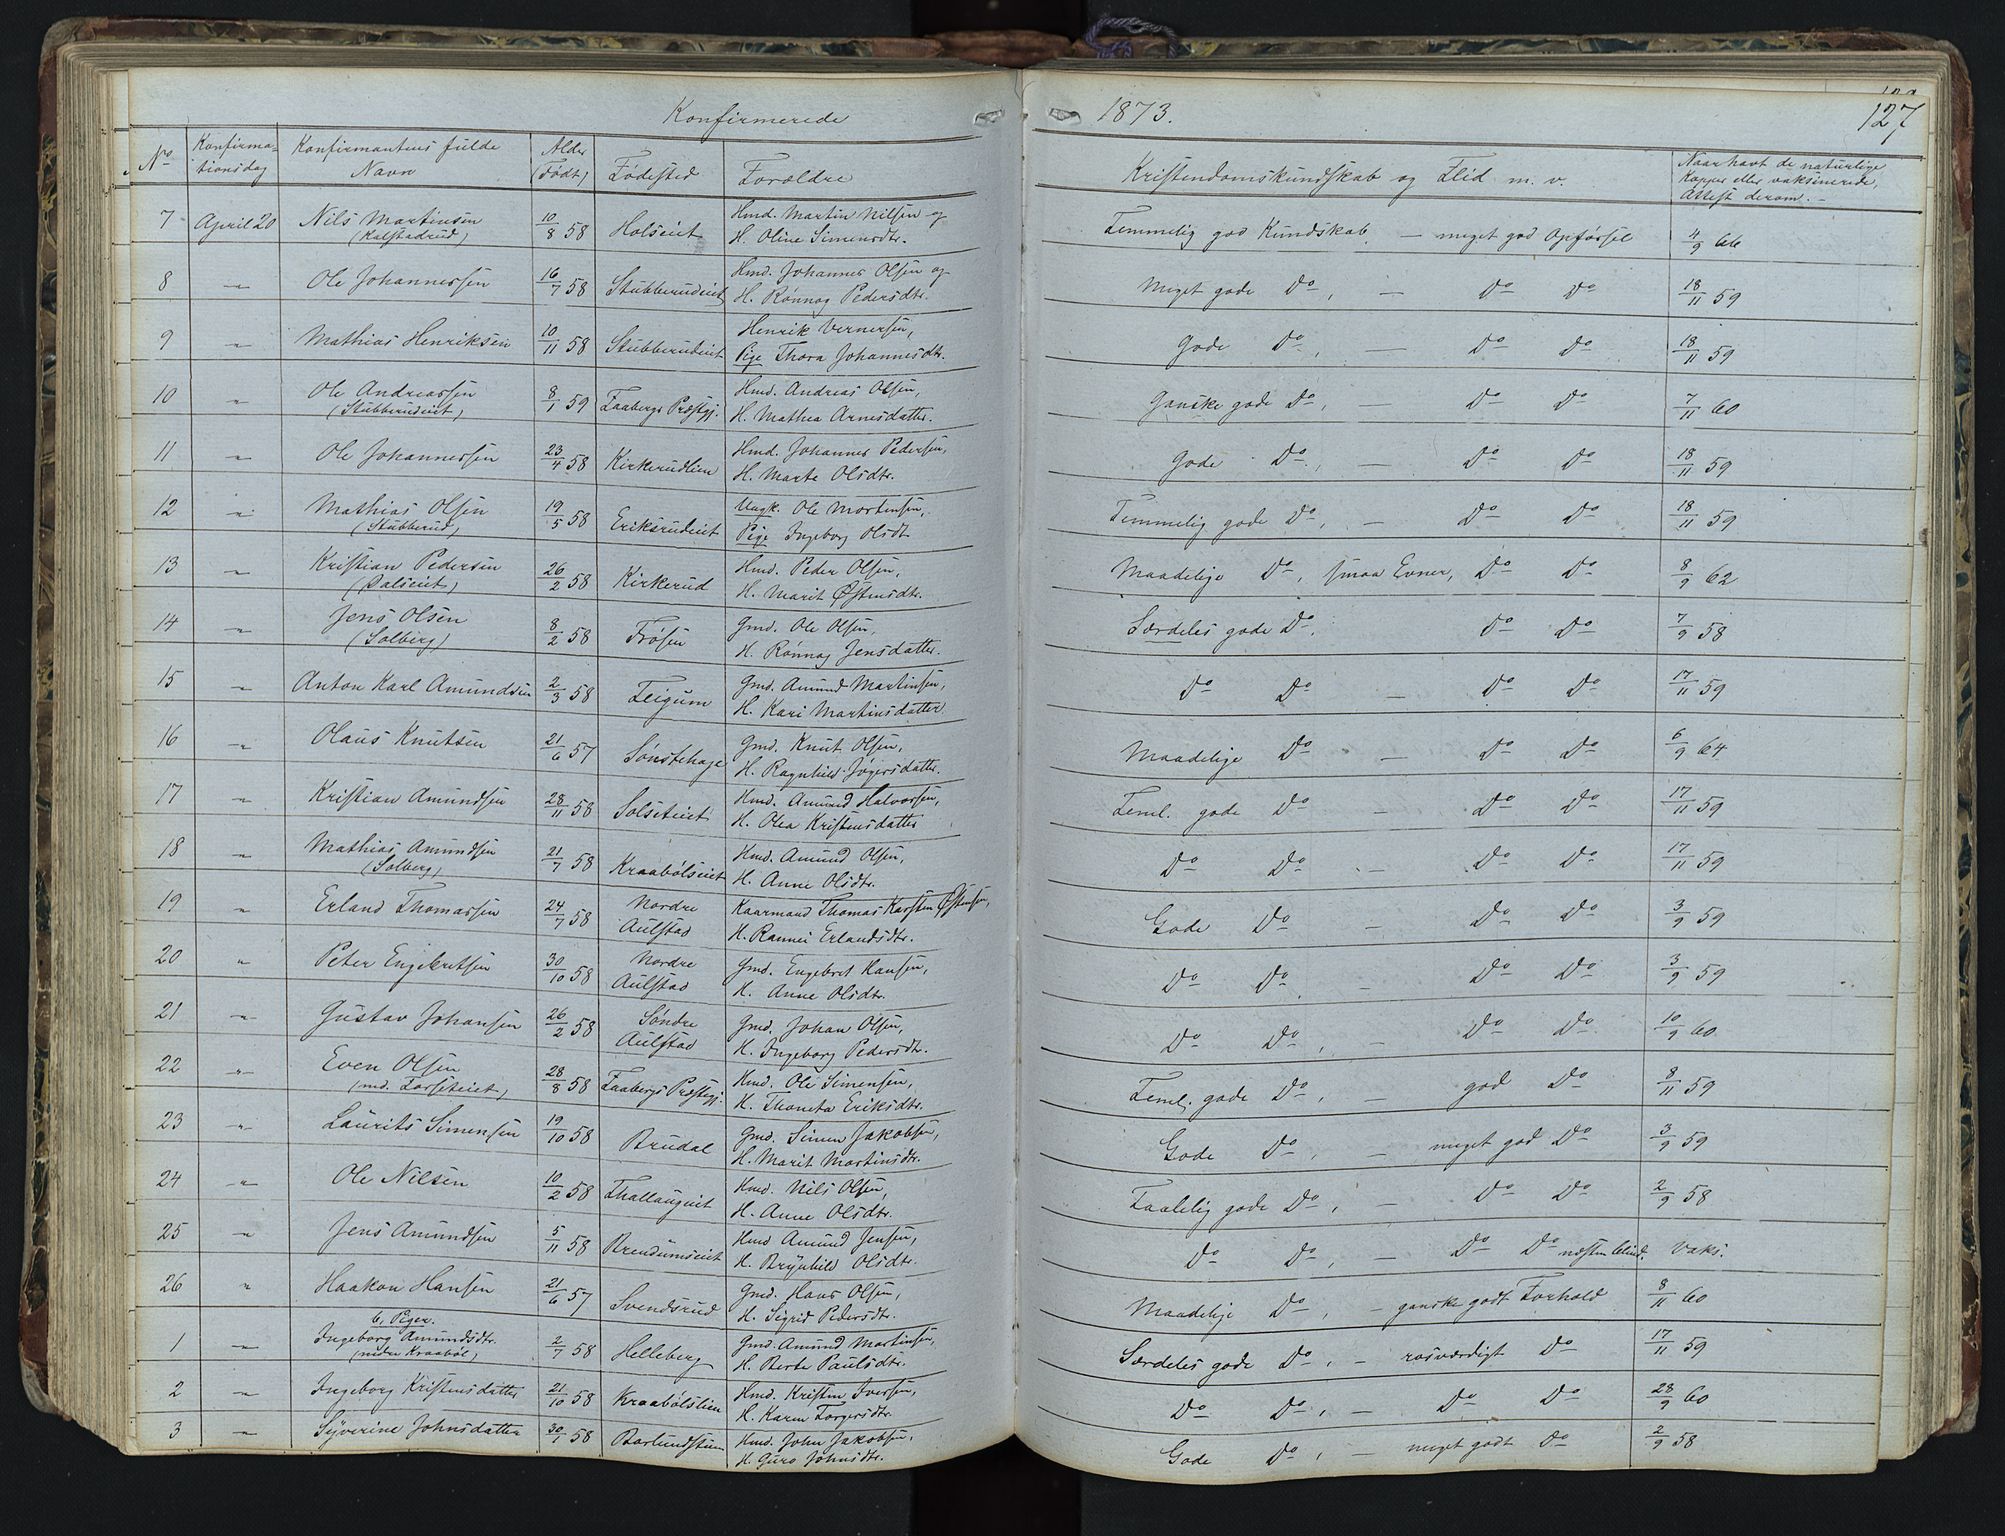 Konfirmerede
No
Konfirma-
tionsdag
Konfirmantens fulde
Navn
Alder
(Født)
Fødested
Forældre
7 April 20 Nils Martinsen 10/8 58 Holseiet Hmd. Martin Nilsen og
(Kalstadrud) H. Oline Simensdtr.
8 " Ole Johannessen 16/7 58 Stubberudeiet Hmd. Johannes Olsen og
H. Rønnog Pedersdtr.
9 " Mathias Henriksen 10/11 58 Stubberudeiet Henrik Vernersen,
Pige Thora Johannesdtr.
10 " Ole Andreassen 8/1 59 Faabergs Præstgj. Hmd. Andreas Olsen,
(Stubberudeiet) H. Mathea Arnesdatter.
11 " Ole Johannessen 23/4 58 Kirkerudlien Hmd. Johannes Pedersen,
H. Marte Olsdtr.
12 " Mathias Olsen 19/5 58 Eriksrudeiet Ungk. Ole Mortensen,
(Stubberud) Pige Ingeborg Olsdt
13 " Kristian Pedersen 26/2 58 Kirkerud Hmd. Peder Olsen,
H. Marit Østensdtr.
14 " Jens Olsen 8/2 58 Frøsen Gmd. Ole Olsen,
(Solberg) H. Rønnog Jensdatter.
15 " Anton Karl Amundsen 2/3 58 Fligum Gmd. Amund Martinsen,
H. Kari Martinsdatter
16 " Olaus Knutsen 21/6 57 Sønstehage Gmd. Knut Olsen,
H. Ragnhild Jøgersdatter.
17 " Kristian Amundsen 28/11 58 Solseteiet Hmd. Amund Halvorsen,
H. Olea Kristensdatter
18 " Mathias Amundsen 21/7 58 Kraabølseiet Hmd. Amund Olsen,
(Solberg) H. Anne Olsdtr.
19 " Erland Thomassen 24/7 58 Nordre Aulstad Kaarmand Thomas Karsten Østensen,
H. Rannei Erlandsdtr.
20 " Peter Engebretsen 30/10 58 Nordre Aulstad Gmd. Engebret Hansen,
H. Anne Olsdtr.
21 " Gustav Johansen 26/2 58 Søndre Aulstad Gmd. Johan Olsen,
H. Ingeborg Pedersdtr.
22 " Even Olsen 28/8 58 Faabergs Præstgj. Hmd. Ole Simensen,
(nd. Forseteiet) H. Thoneta Eriksdtr.
23 " Laurits Simensen 19/10 58 Brudal Gmd. Simen Jakobsen,
H. Marit Martinsdtr.
24 " Ole Nilsen 10/2 58 Thallaugeiet Hmd. Nils Olsen,
H. Anne Olsdtr.
25 " Jens Amundsen 5/11 58 Brendumseiet Hmd Amund Jensen,
H. Brynhild Olsdtr.
26 " Haakon Hansen 21/6 57 Svendsrud Gmd. Hans Olsen,
H. Sigrid Pedersdtr.
b, Piger.
1 " Ingeborg Amundsdtr. 2/7 58 Helleberg Gmd. Amund Martinsen,
(nedre Kraabøl) H. Berte Paulsdtr.
2 " Ingeborg Kristensdatter 21/10 58 Kraabølslien Hmd. Kristen Iversen,
H. Karen Torgersdtr.
3 " Syverine Johnsdatter 30/1 58 Baslundstuen Hmd. John Jakobsen,
H. Guro Johnsdtr.
1873.
127
Kristendomskundskab og Flid m. v.
Naar havt de naturlige
Kopper eller vaksinerede,
Attest derom. -
Temmelig god Kundskab, — meget god Opførsel 4/9 66
Meget gode Do, — Do Do 18/11 59
Gode Do, — Do Do 18/11 59
Ganske gode Do, — Do Do 7/11 60
Gode Do, — Do Do 18/11 59
Temmelig gode Do, — Do Do 18/11 59
Maadelige Do, smaa Evner, Do Do 8/9 62
Særdeles gode Do, Do Do 7/9 58
Do Do — Do Do 17/11 59
Maadelige Do — Do Do 6/9 64
Teml. gode Do — Do Do 17/11 59
Do Do - Do Do 17/11 59
Gode Do — Do Do 3/9 59
Do Do — Do Do 3/9 59
Do Do, — Do Do 10/9 60
Teml. gode Do, — god Do 8/11 59
Gode Do, — meget god Do 3/9 59
Taalelig gode Do, — Do Do 2/9 58
Do Do, — Do Do næsten blind. Vaks.
Maadelige Do, — ganske godt Forhold 8/11 60
Særdeles gode Do, — rosværdigt Do 17/11 59
Do Do, — Do Do 28/9 60
Gode Do, — meget godt Do 2/9 58